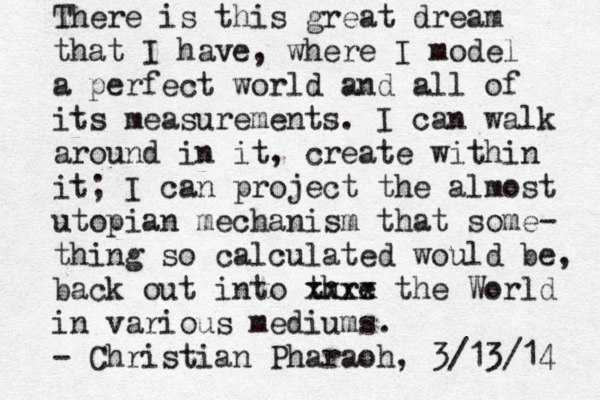 There is this great dream
that I have, where I model
a perfect world and all of
its measurements. I can walk
around in it, create within
it; I can project the almost
utopian mechanism that some-
thing so calculated would be,
back out into the World
in various mediums.
- Christian Pharaoh, 3/13/14